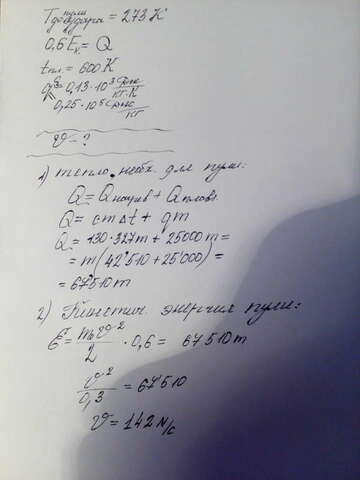 T до удара пули = 273 K
0,6 Eк = Q
tпл. = 600 K
c = 0,13 · 10³ Дж/кг·К
λ = 0,25 · 10⁵ Дж/кг
v = ?
1) тепло. необх. для пули:
Q = Qнагрев + Qплавл
Q = cmΔt + qm
Q = 130 · 327m + 25000m =
= m(42'510 + 25'000) =
= 67510m
2) Кинетич. энергия пули:
E = mv²/2 · 0,6 = 67510m
v²/0,3 = 67510
v = 142 м/с